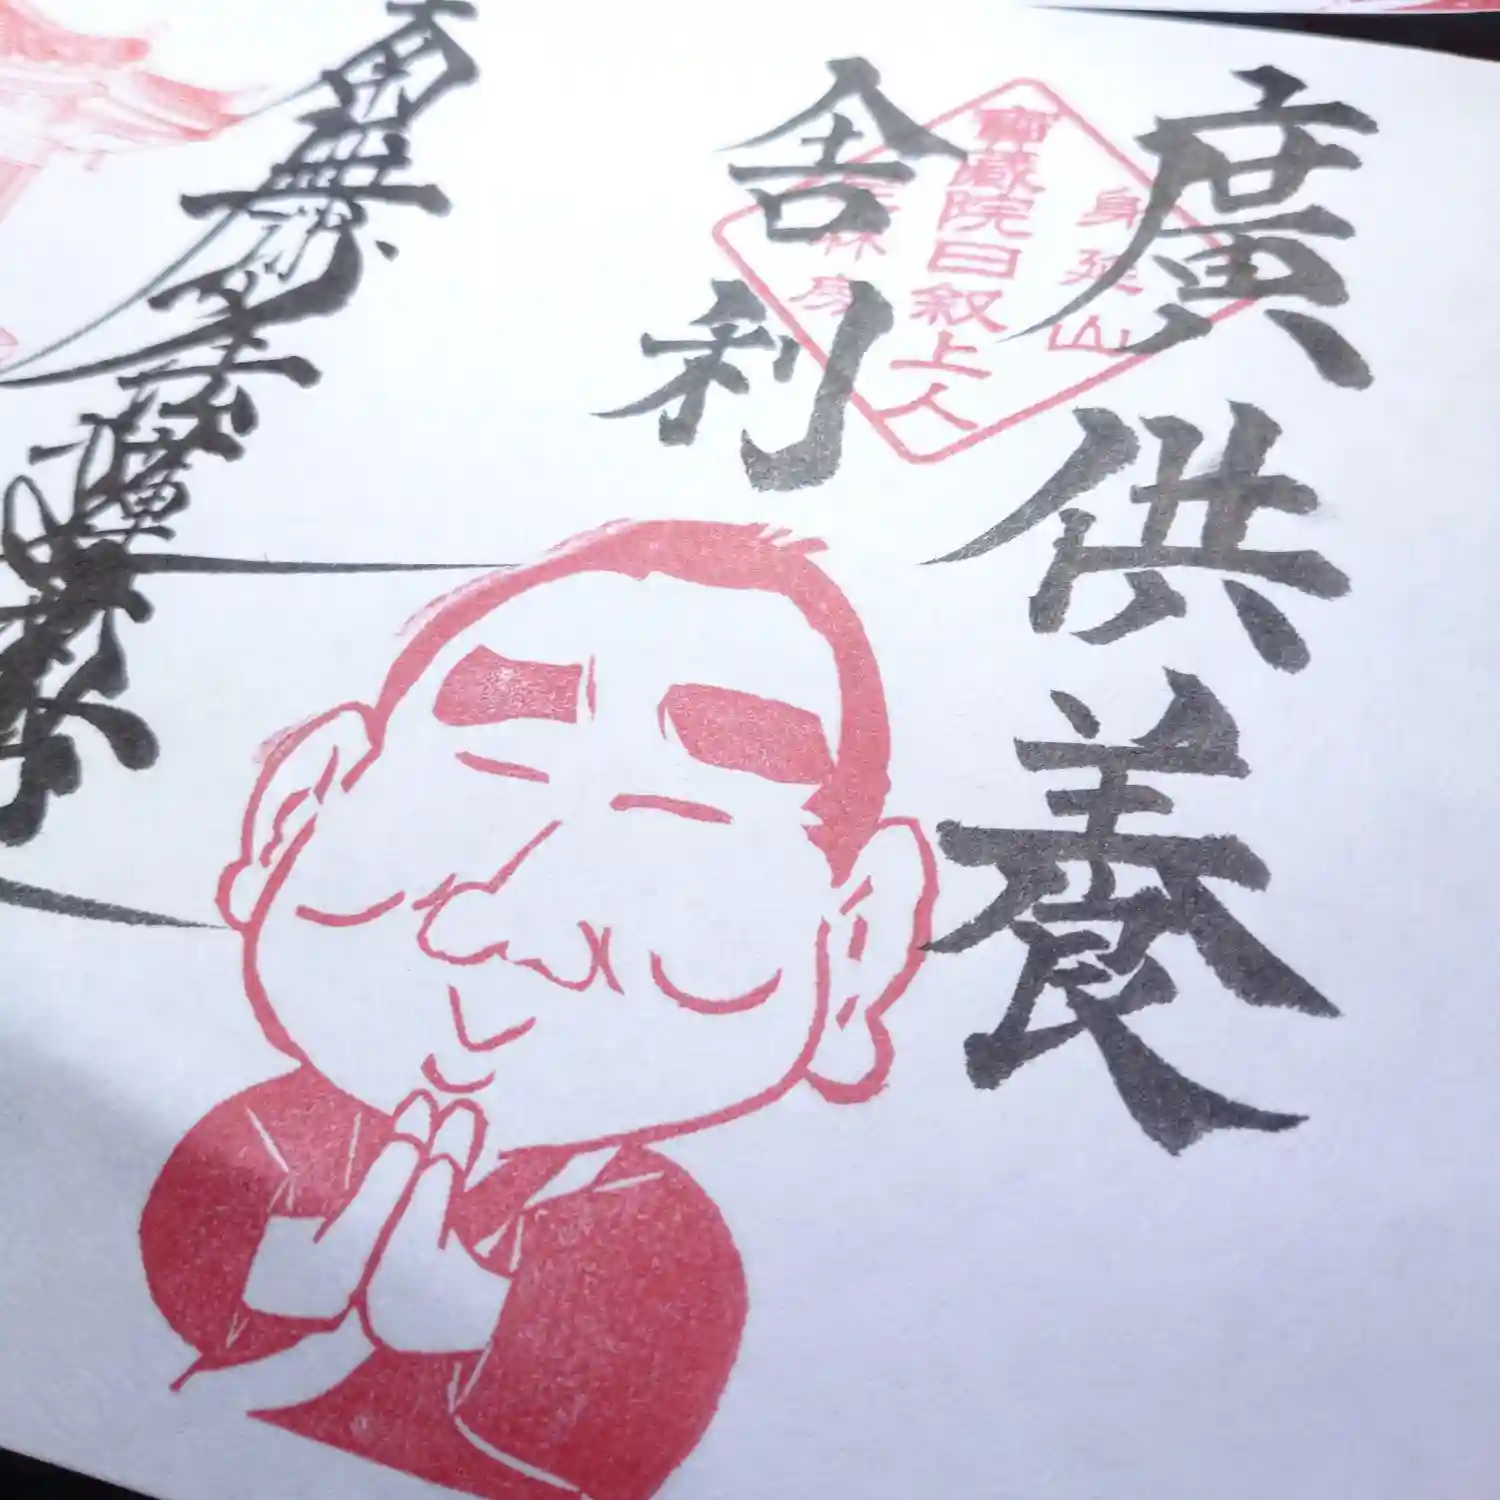 廣供養
舎利
身延山
前蔵院日叙上人
南無妙法蓮華